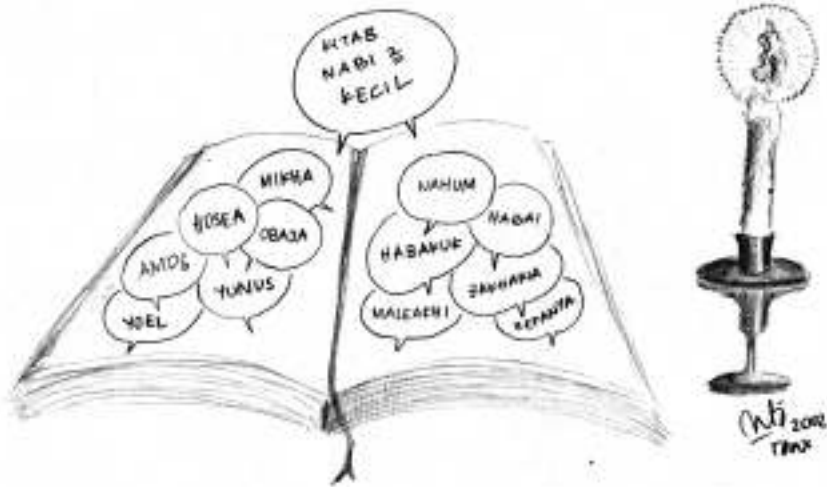 KITAB
NABI 2
KECIL
MIKHA
HOSEA
OBAJA
AMOS
YUNUS
YOEL
NAHUM
HAGAI
HABAKUK
ZAKHARIA
MALEAKHI
ZEFANYA
2002